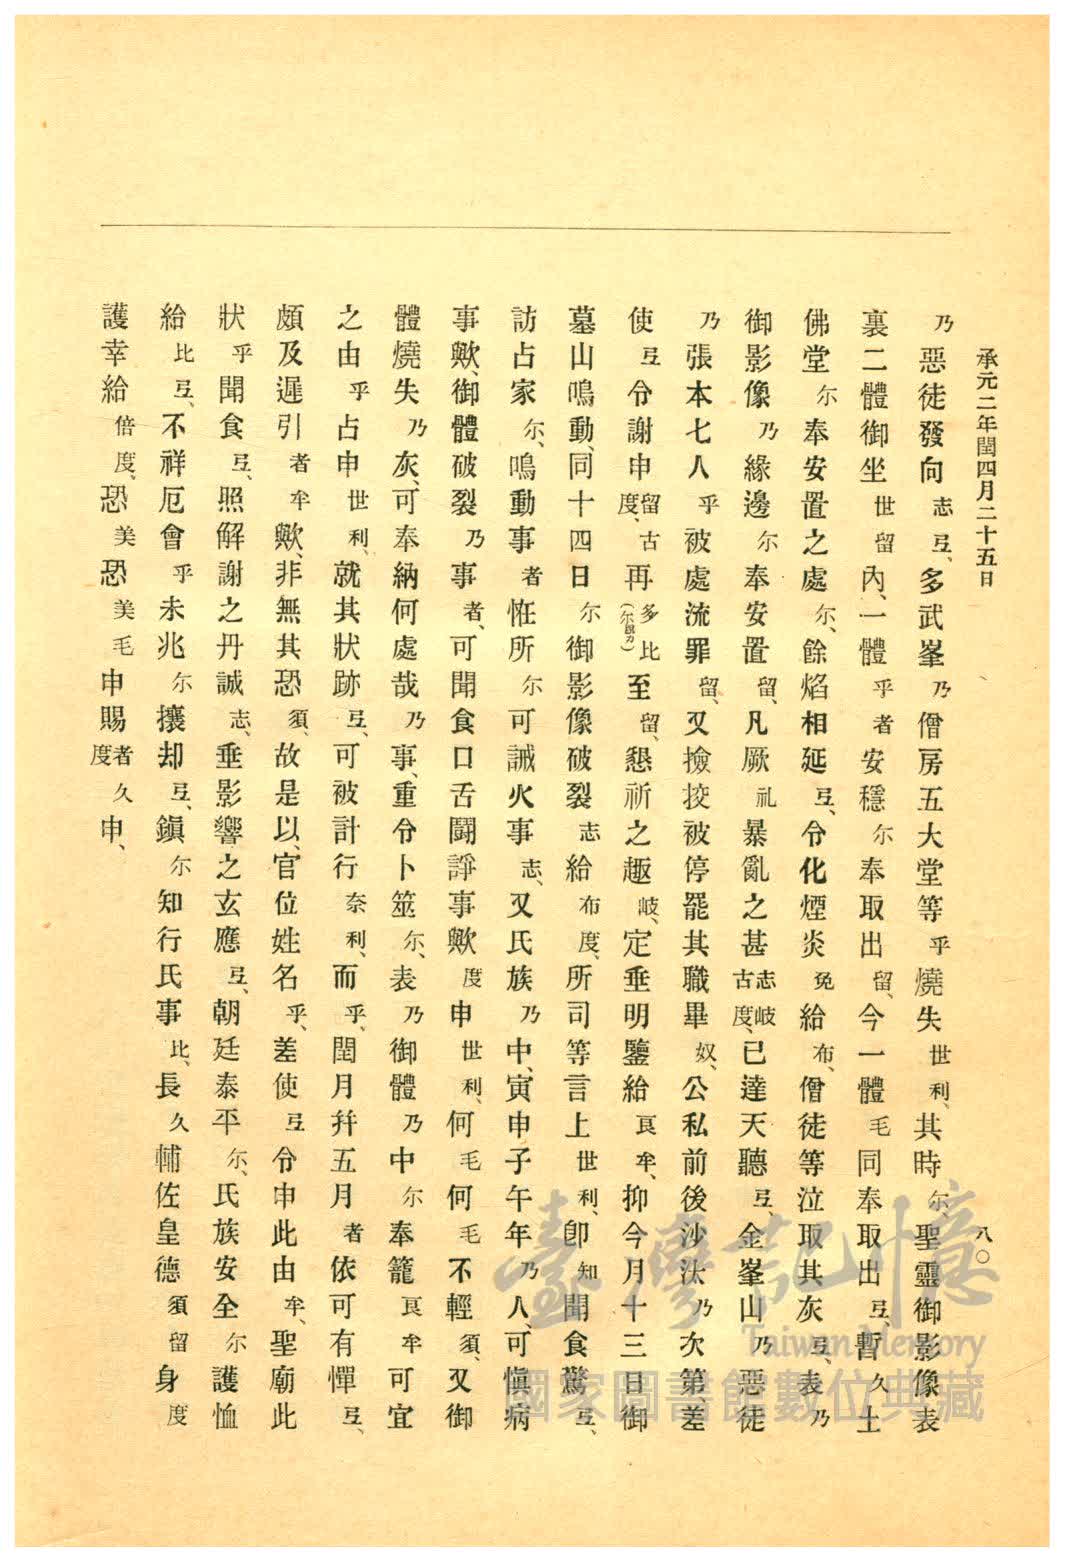 承元二年閏四月二十五日
八〇
乃惡徒發向志弖、多武峯乃僧房五大堂等乎燒失世利、其時尓、聖靈御影像表
裏二體御坐世留內、一體乎者安穩尓奉取出留、今一體毛同奉取出弖、暫久土
佛堂尓奉安置之處尓、餘焰相延弖、令化煙炎免給布、僧徒等泣取其灰弖、表乃
御影像乃緣邊尓奉安置留、凡厥礼暴亂之甚志岐古度、已達天聽弖、金峯山乃惡徒
乃張本七人乎被處流罪留、又撿挍被停罷其職畢奴、公私前後沙汰乃次第、差
使弖令謝申留古度、再多比(尓脫カ)至留、懇祈之趣岐、定垂明鑒給良牟、抑今月十三日御
墓山鳴動、同十四日尓御影像破裂志給布度、所司等言上世利、卽知聞食驚弖、
訪占家尓、鳴動事者恠所尓可誡火事志、又氏族乃中、寅申子午年乃人、可愼病
事歟、御體破裂乃事者、可聞食口舌鬪諍事歟度申世利、何毛何毛不輕須、又御
體燒失乃灰、可奉納何處哉乃事、重令卜筮尓、表乃御體乃中尓奉籠良牟可宜
之由乎占申世利、就其狀跡弖、可被計行奈利、而乎、閏月幷五月者依可有憚弖、
頗及遲引者牟歟、非無其恐須、故是以、官位姓名乎、差使弖令申此由牟、聖廟此
狀乎聞食弖、照解謝之丹誠志、垂影響之玄應弖、朝廷泰平尓、氏族安全尓護恤
給比弖、不祥厄會乎未兆尓攘却弖、鎭尓知行氏事比、長久輔佐皇德須留身度
護幸給倍度、恐美恐美毛申賜者久度申、
臺灣記憶
Taiwan Memory
國家圖書館數位典藏